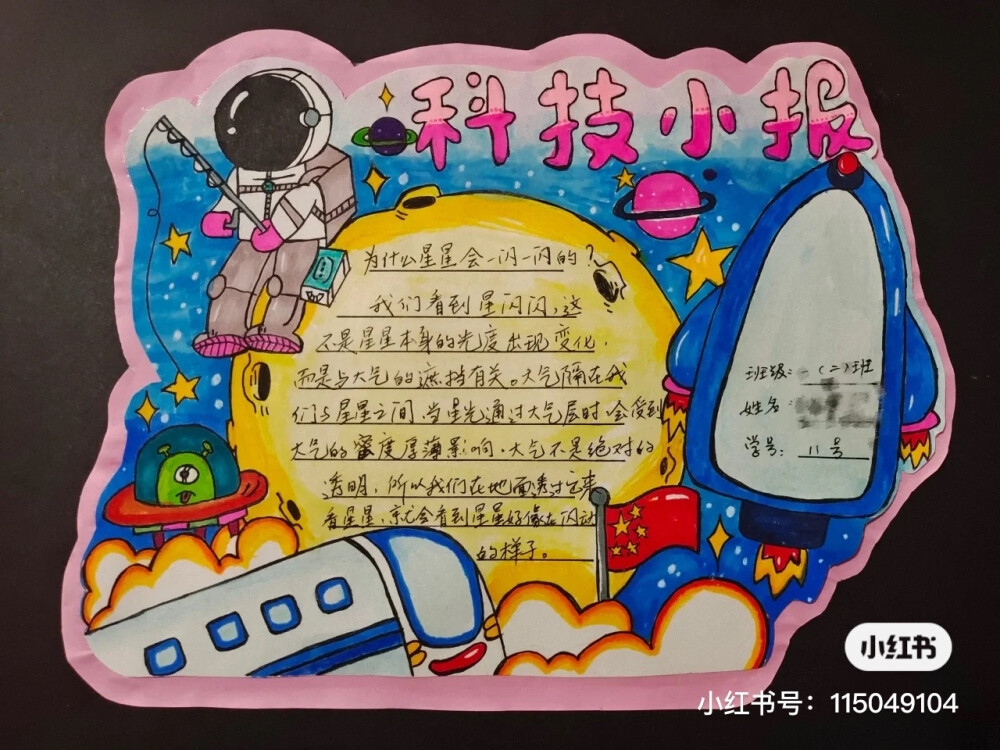 科技小报
为什么星星会一闪一闪的？
我们看到星闪闪，这
不是星星本身的光度出现变化，
而是与大气的遮挡有关。大气隔在我
们与星星之间，当星光通过大气层时，会受到
大气的密度厚薄影响。大气不是绝对的
透明，所以我们在地面透过它来
看星星，就会看到星星好像在闪动
的样子。
班级：（二）班
姓名：
学号：11号
小红书
小红书号：115049104